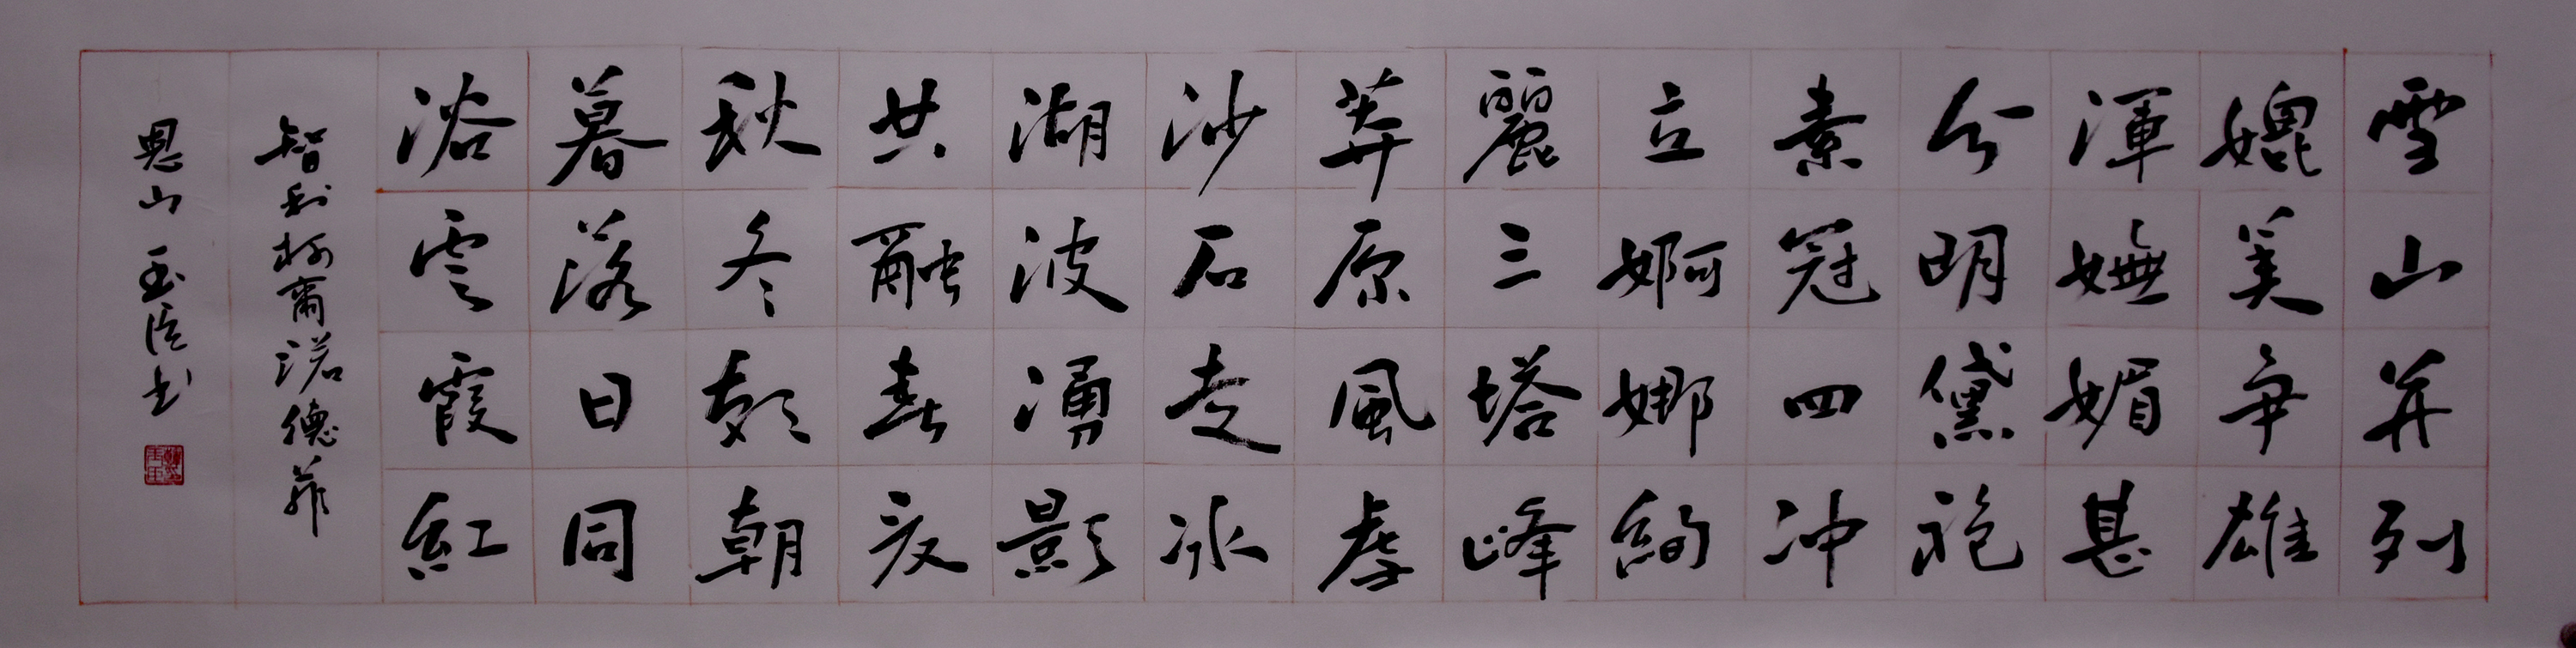 雪山並列
媲美爭雄
渾嫵媚甚
分明黛袍
素冠四冲
立婀娜絢
麗三塔峰
莽原風孝
沙石走冰
湖波湧影
共融春夏
秋冬朝朝
暮落日同
浴雲霞紅
智利柯爾諾德菲
恩山 玉臣书